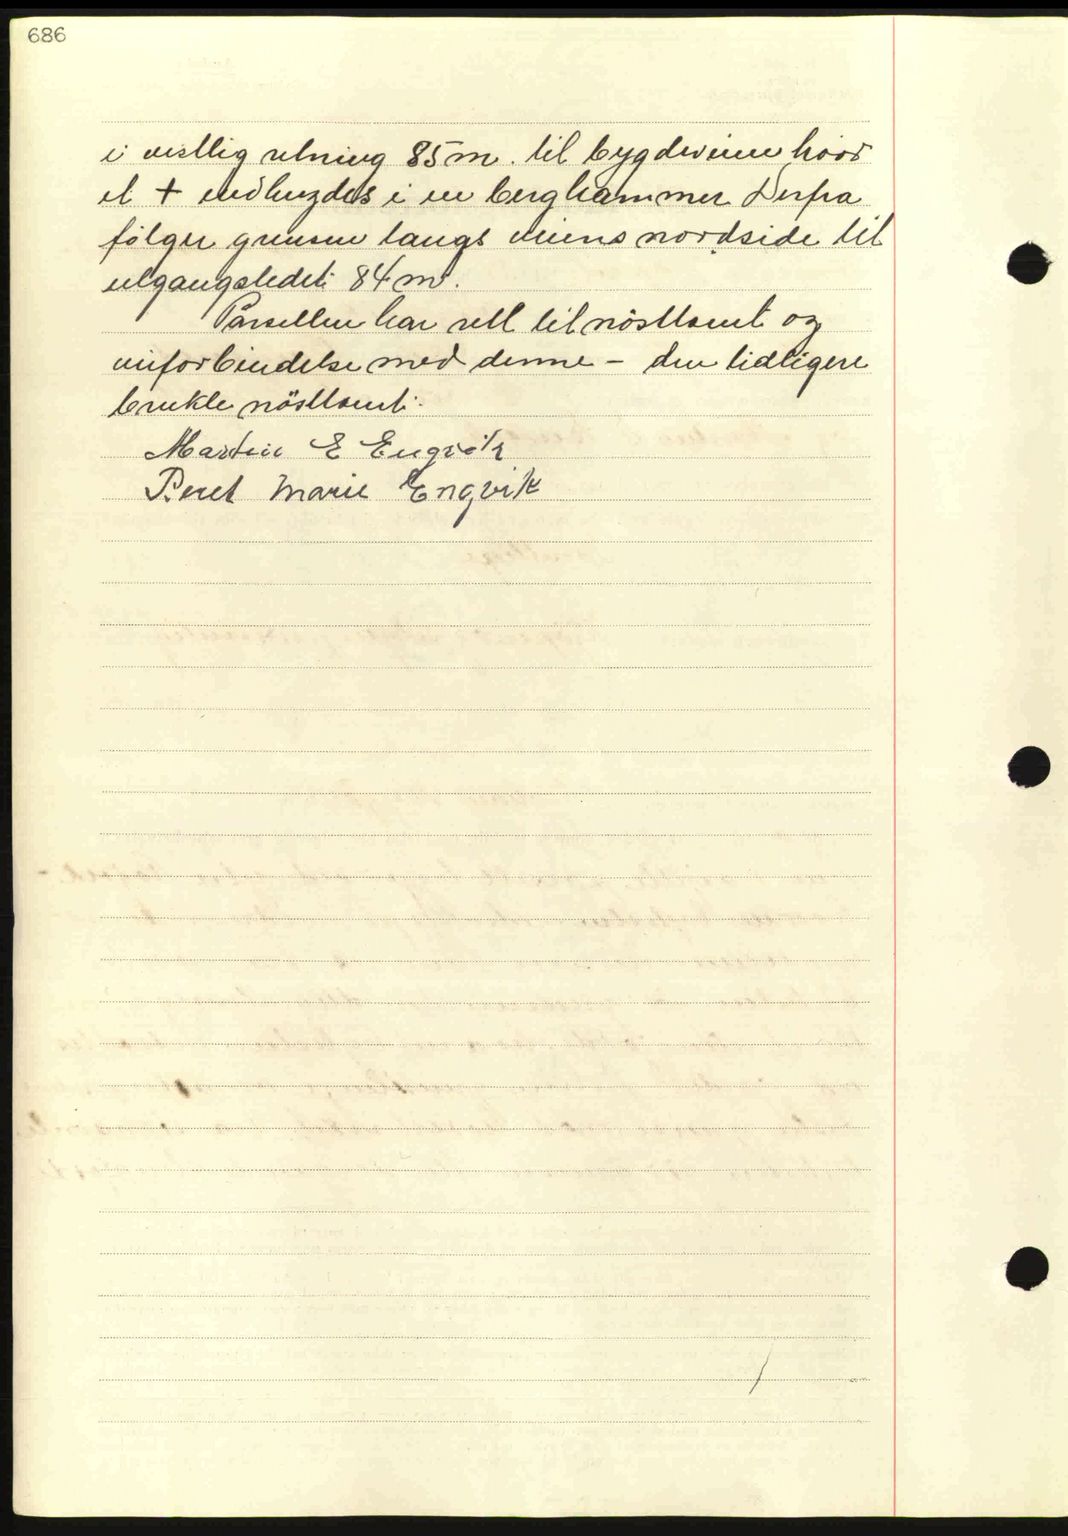 686
i vestlig retning 85 m. til bygdeveien hvor
et + innhugdes i en berghammer. Derfra
følger grensen langs veiens nordside til
utgangstedet 84 m.
Parsellen har rett til nösttomt og
veiforbindelse med denne – den tidligere
brukte nösttomt.
Martin E Engvik
Beret Marie Engvik